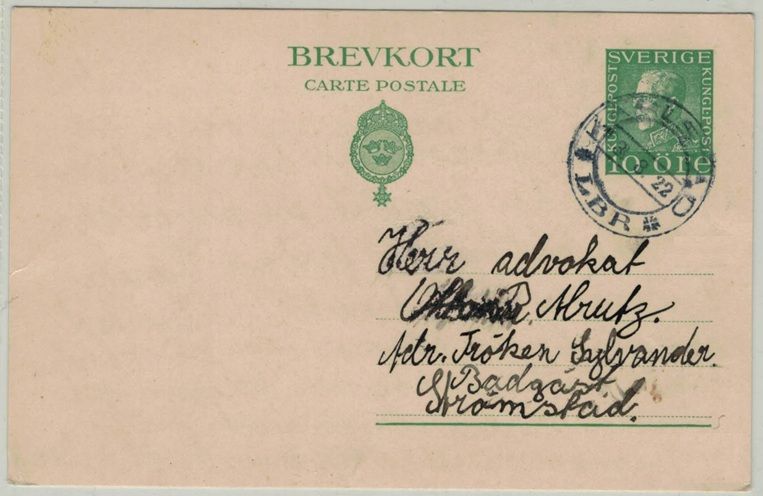 BREVKORT
CARTE POSTALE
SVERIGE
KUNGL POST
KUNGL POST
10 ÖRE
22
LBR
Herr advokat
Alrutz.
Adr. Fröken Sylvander.
Badgäst.
Strömstad.